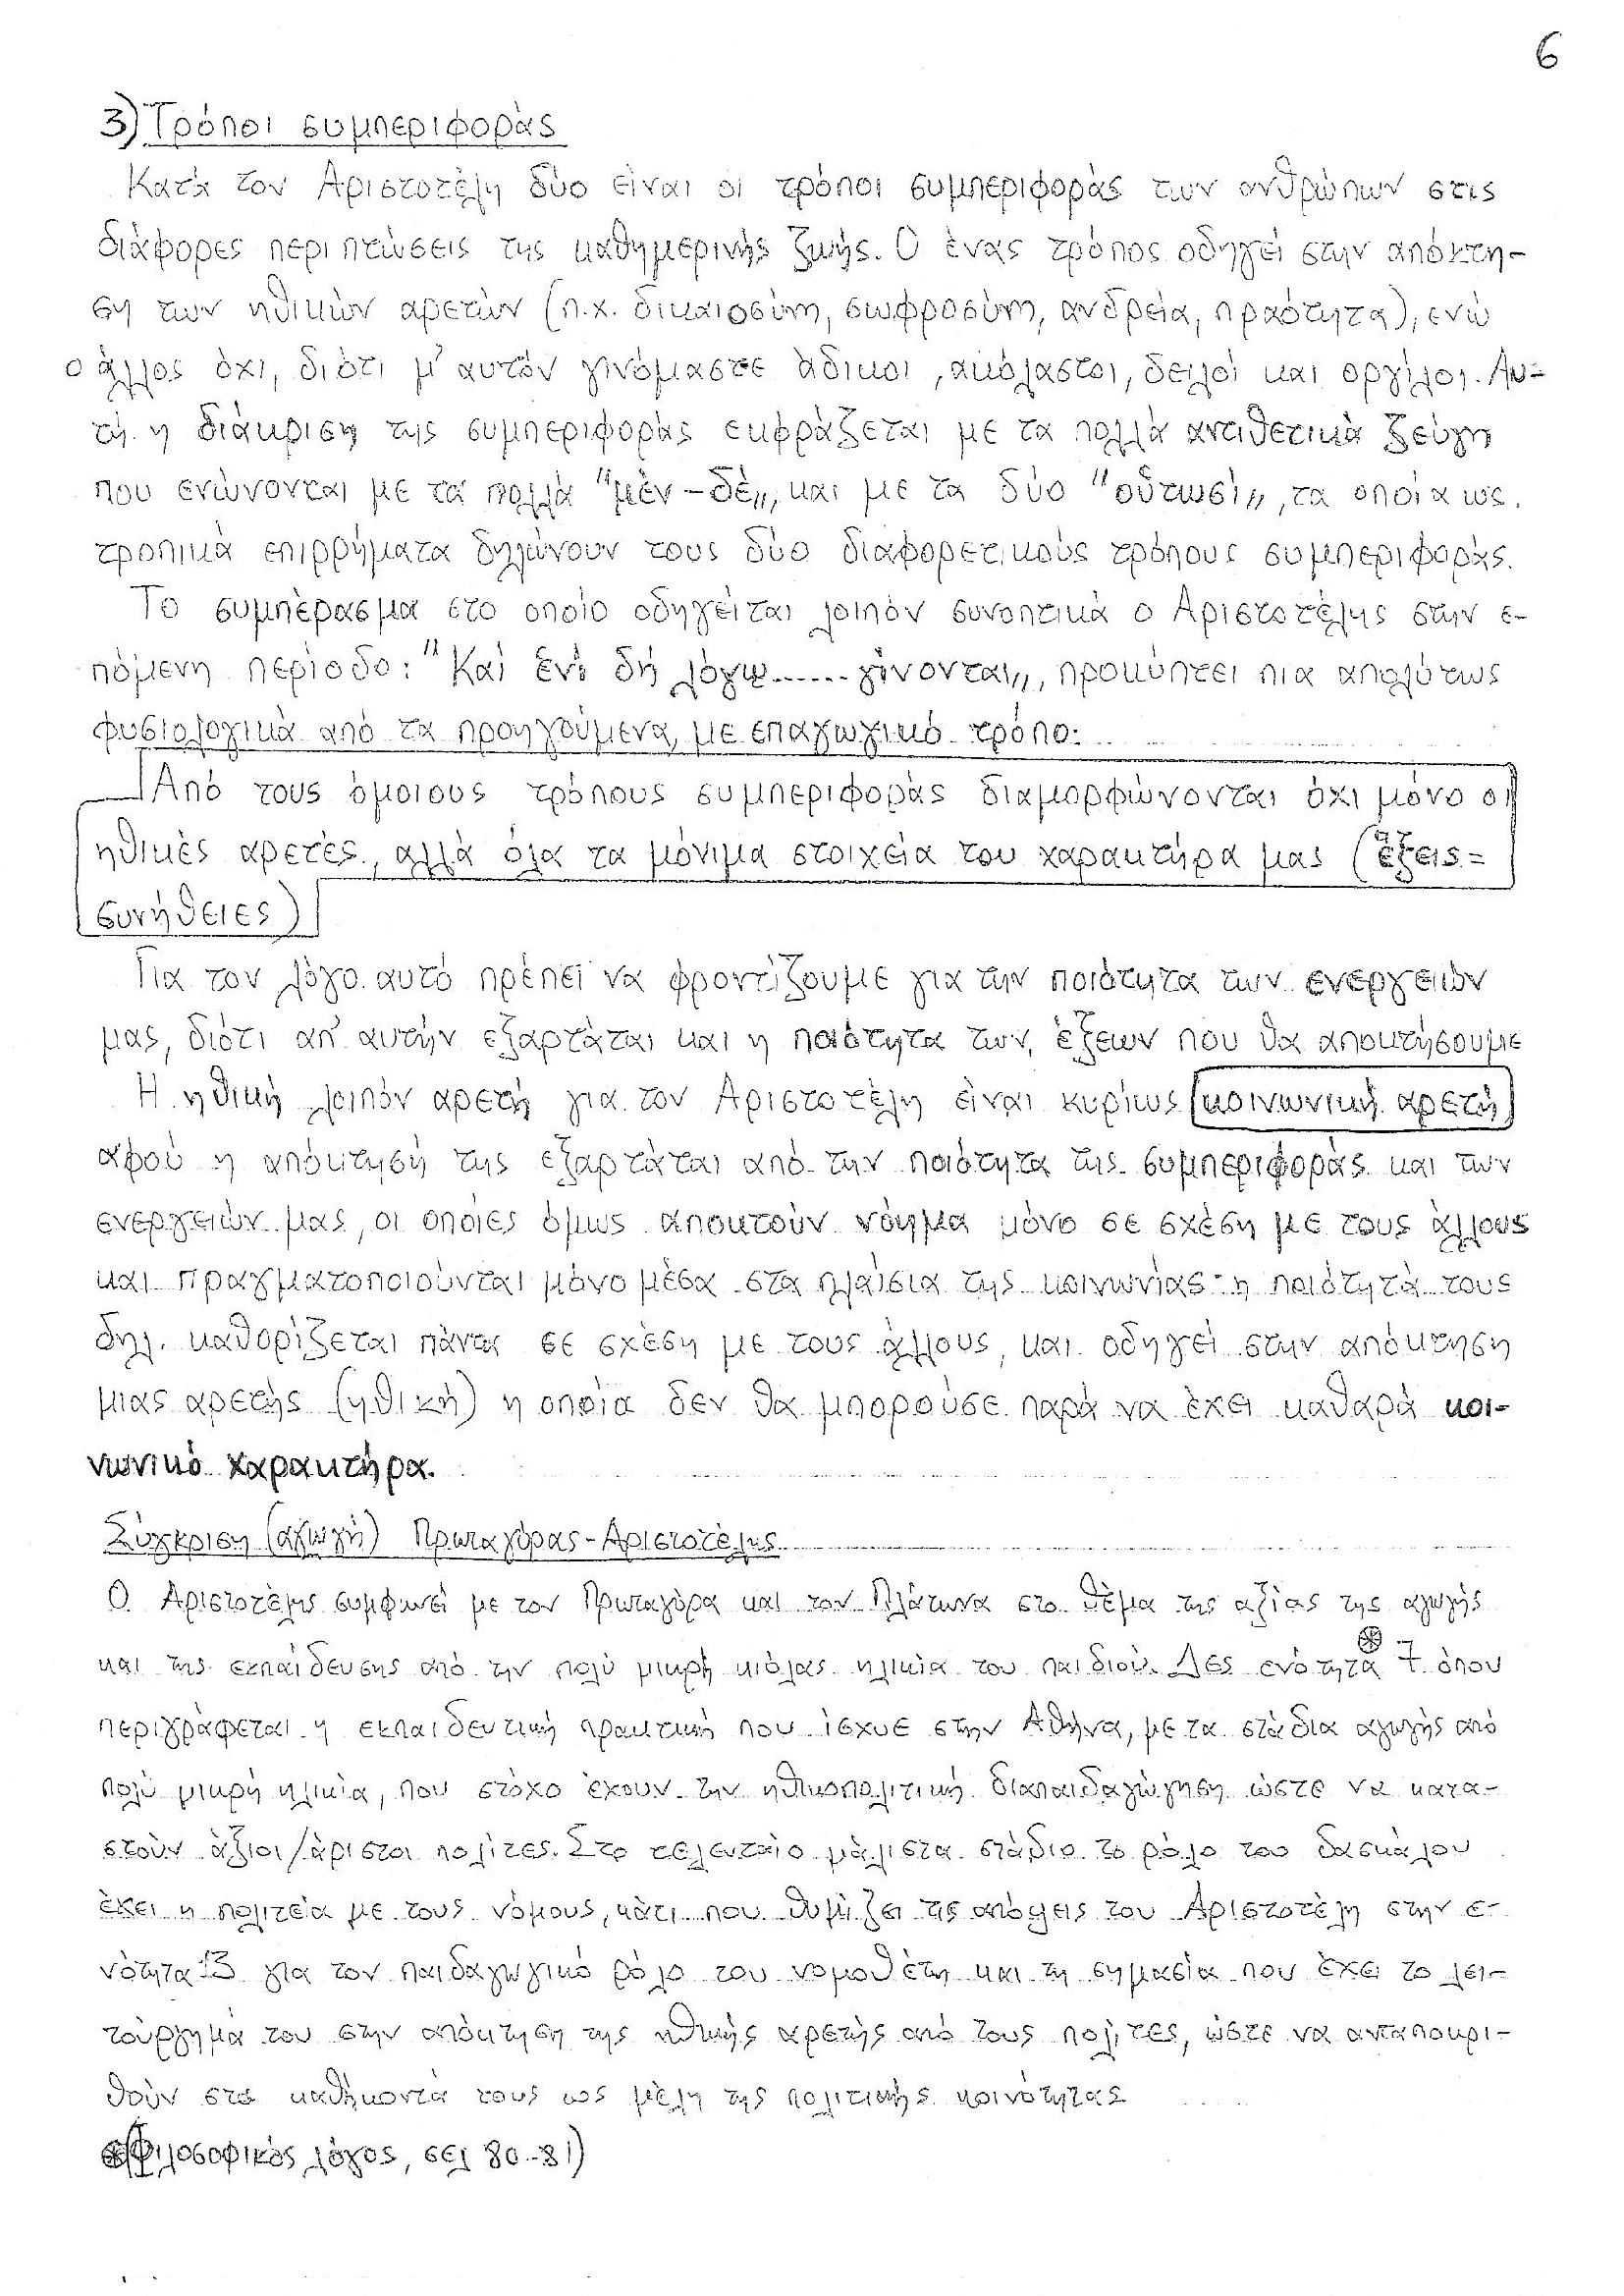 6
3) Τρόποι συμπεριφοράς
Κατά τον Αριστοτέλη δύο είναι οι τρόποι συμπεριφοράς των ανθρώπων στις
διάφορες περιπτώσεις της καθημερινής ζωής. Ο ένας τρόπος οδηγεί στην απόκτη-
ση των ηθικών αρετών (π.χ. δικαιοσύνη, σωφροσύνη, ανδρεία, πραότητα), ενώ
ο άλλος όχι, διότι μ' αυτόν γινόμαστε άδικοι, ακόλαστοι, δειλοί και οργίλοι. Αυ-
τή η διάκριση της συμπεριφοράς εκφράζεται με τα πολλά αντιθετικά ζεύγη
που ενώνονται με τα πολλά "μὲν - δὲ", και με τα δύο "οὑτωσὶ", τα οποία ως
τροπικά επιρρήματα δηλώνουν τους δύο διαφορετικούς τρόπους συμπεριφοράς.
Το συμπέρασμα στο οποίο οδηγείται λοιπόν συνοπτικά ο Αριστοτέλης στην ε-
πόμενη περίοδο: "Καὶ ἑνὶ δὴ λόγῳ...... γίνονται", προκύπτει πια απολύτως
φυσιολογικά από τα προηγούμενα, με επαγωγικό τρόπο:
Από τους όμοιους τρόπους συμπεριφοράς διαμορφώνονται όχι μόνο οι
ηθικές αρετές, αλλά όλα τα μόνιμα στοιχεία του χαρακτήρα μας (ἕξεις =
συνήθειες)
Για τον λόγο αυτό πρέπει να φροντίζουμε για την ποιότητα των ενεργειών
μας, διότι απ' αυτήν εξαρτάται και η ποιότητα των έξεων που θα αποκτήσουμε
Η ηθική λοιπόν αρετή για τον Αριστοτέλη είναι κυρίως κοινωνική αρετή
αφού η απόκτησή της εξαρτάται από την ποιότητα της συμπεριφοράς και των
ενεργειών μας, οι οποίες όμως αποκτούν νόημα μόνο σε σχέση με τους άλλους
και πραγματοποιούνται μόνο μέσα στα πλαίσια της κοινωνίας· η ποιότητά τους
δηλ. καθορίζεται πάντα σε σχέση με τους άλλους, και οδηγεί στην απόκτηση
μιας αρετής (ηθική) η οποία δεν θα μπορούσε παρά να έχει καθαρά κοι-
νωνικό χαρακτήρα.
Σύγκριση (αγωγή) Πρωταγόρας - Αριστοτέλης
Ο Αριστοτέλης συμφωνεί με τον Πρωταγόρα και τον Πλάτωνα στο θέμα της αξίας της αγωγής
και της εκπαίδευσης από την πολύ μικρή κιόλας ηλικία του παιδιού. Δες ενότητα 7 όπου
περιγράφεται η εκπαιδευτική πρακτική που ίσχυε στην Αθήνα, με τα στάδια αγωγής από
πολύ μικρή ηλικία, που στόχο έχουν την ηθικοπολιτική διαπαιδαγώγηση ώστε να κατα-
στούν άξιοι/άριστοι πολίτες. Στο τελευταίο μάλιστα στάδιο το ρόλο του δασκάλου
έχει η πολιτεία με τους νόμους, κάτι που θυμίζει τις απόψεις του Αριστοτέλη στην ε-
νότητα 13 για τον παιδαγωγικό ρόλο του νομοθέτη και τη σημασία που έχει το λει-
τούργημά του στην απόκτηση της ηθικής αρετής από τους πολίτες, ώστε να ανταποκρι-
θούν στα καθήκοντά τους ως μέλη της πολιτικής κοινότητας
(Φιλοσοφικός λόγος, σελ 80-81)